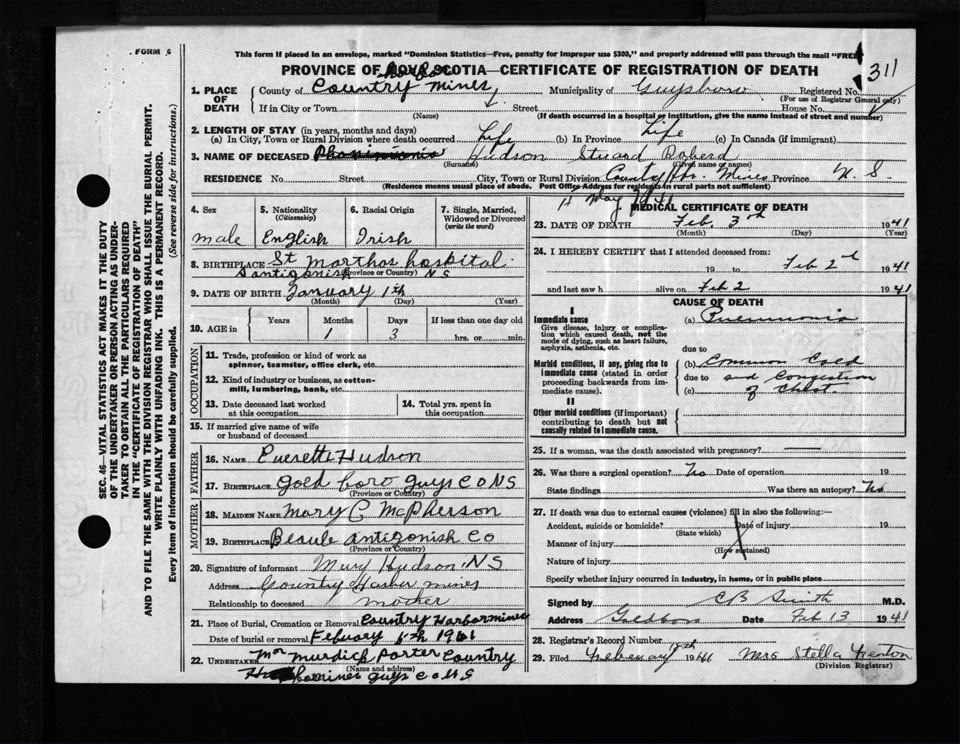 FORM 6
This form if placed in an envelope, marked "Dominion Statistics—Free, penalty for improper use $300," and properly addressed will pass through the mail "FREE
311
PROVINCE OF NOVA SCOTIA—CERTIFICATE OF REGISTRATION OF DEATH
1. PLACE OF DEATH County of Country Mines Municipality of Guysboro Registered No.
(For use of Registrar General only)
If in City or Town Street House No.
(Name) (If death occurred in a hospital or institution, give the name instead of street and number)
2. LENGTH OF STAY (in years, months and days)
(a) In City, Town or Rural Division where death occurred Life (b) In Province Life (c) In Canada (if immigrant)
3. NAME OF DECEASED Hudson Stuard Roberd
(Surname) (Given name or names)
RESIDENCE No. Street City, Town or Rural Division County Hr. Mines Province N. S.
(Residence means usual place of abode. Post Office Address for residents in rural parts not sufficient)
SEC. 46—VITAL STATISTICS ACT MAKES IT THE DUTY
OF THE UNDERTAKER OR PERSON ACTING AS UNDER-
TAKER TO OBTAIN ALL THE PARTICULARS REQUIRED
IN THE "CERTIFICATE OF REGISTRATION OF DEATH"
AND TO FILE THE SAME WITH THE DIVISION REGISTRAR WHO SHALL ISSUE THE BURIAL PERMIT.
WRITE PLAINLY WITH UNFADING INK. THIS IS A PERMANENT RECORD.
Every item of information should be carefully supplied. (See reverse side for instructions.)
4. Sex 5. Nationality (Citizenship) 6. Racial Origin 7. Single, Married, Widowed or Divorced (write the word)
male English Irish
8. BIRTHPLACE St Marthas hospital
antigonish (Province or Country) N S
9. DATE OF BIRTH January 1th
(Month) (Day) (Year)
10. AGE in Years Months Days If less than one day old
1 3 hrs. or min.
OCCUPATION
11. Trade, profession or kind of work as
spinner, teamster, office clerk, etc.
12. Kind of industry or business, as cotton-
mill, lumbering, bank, etc.
13. Date deceased last worked
at this occupation
14. Total yrs. spent in
this occupation
15. If married give name of wife
or husband of deceased
FATHER
16. NAME Everett Hudson
17. BIRTHPLACE Gold boro guys C O N S
(Province or Country)
MOTHER
18. MAIDEN NAME Mary C McPherson
19. BIRTHPLACE Beaule antigonish Co
(Province or Country)
20. Signature of informant Mury Hudson N S
Address Country Harber mines
Relationship to deceased mother
21. Place of Burial, Cremation or Removal Country Harbor mines
Date of burial or removal Febuary 6th 1941
22. UNDERTAKER Mr Murdick Porter Country
(Name and address)
mines guys C O N S
11 May 1941
MEDICAL CERTIFICATE OF DEATH
23. DATE OF DEATH Feb. 3rd 1941
(Month) (Day) (Year)
24. I HEREBY CERTIFY that I attended deceased from:
19 to Feb 2d 1941
and last saw h alive on Feb 2 1941
CAUSE OF DEATH
I
Immediate cause
Give disease, injury or complica-
tion which caused death, not the
mode of dying, such as heart failure,
asphyxia, asthenia, etc.
(a) Pneumonia
due to
Morbid conditions, if any, giving rise to
immediate cause (stated in order
proceeding backwards from im-
mediate cause).
(b) Common Cold
due to and Congestion
(c) of Chest.
II
Other morbid conditions (if important)
contributing to death but not
causally related to immediate cause.
25. If a woman, was the death associated with pregnancy?
26. Was there a surgical operation? No Date of operation 19
State findings Was there an autopsy? No
27. If death was due to external causes (violence) fill in also the following:—
Accident, suicide or homicide? Date of injury 19
(State which)
Manner of injury
(How sustained)
Nature of injury
Specify whether injury occurred in industry, in home, or in public place
Signed by C B Smith M.D.
Address Goldboro Date Feb 13 1941
28. Registrar's Record Number
29. Filed Febeuary 18th 1941 Mrs Stella Fenton
(Division Registrar)